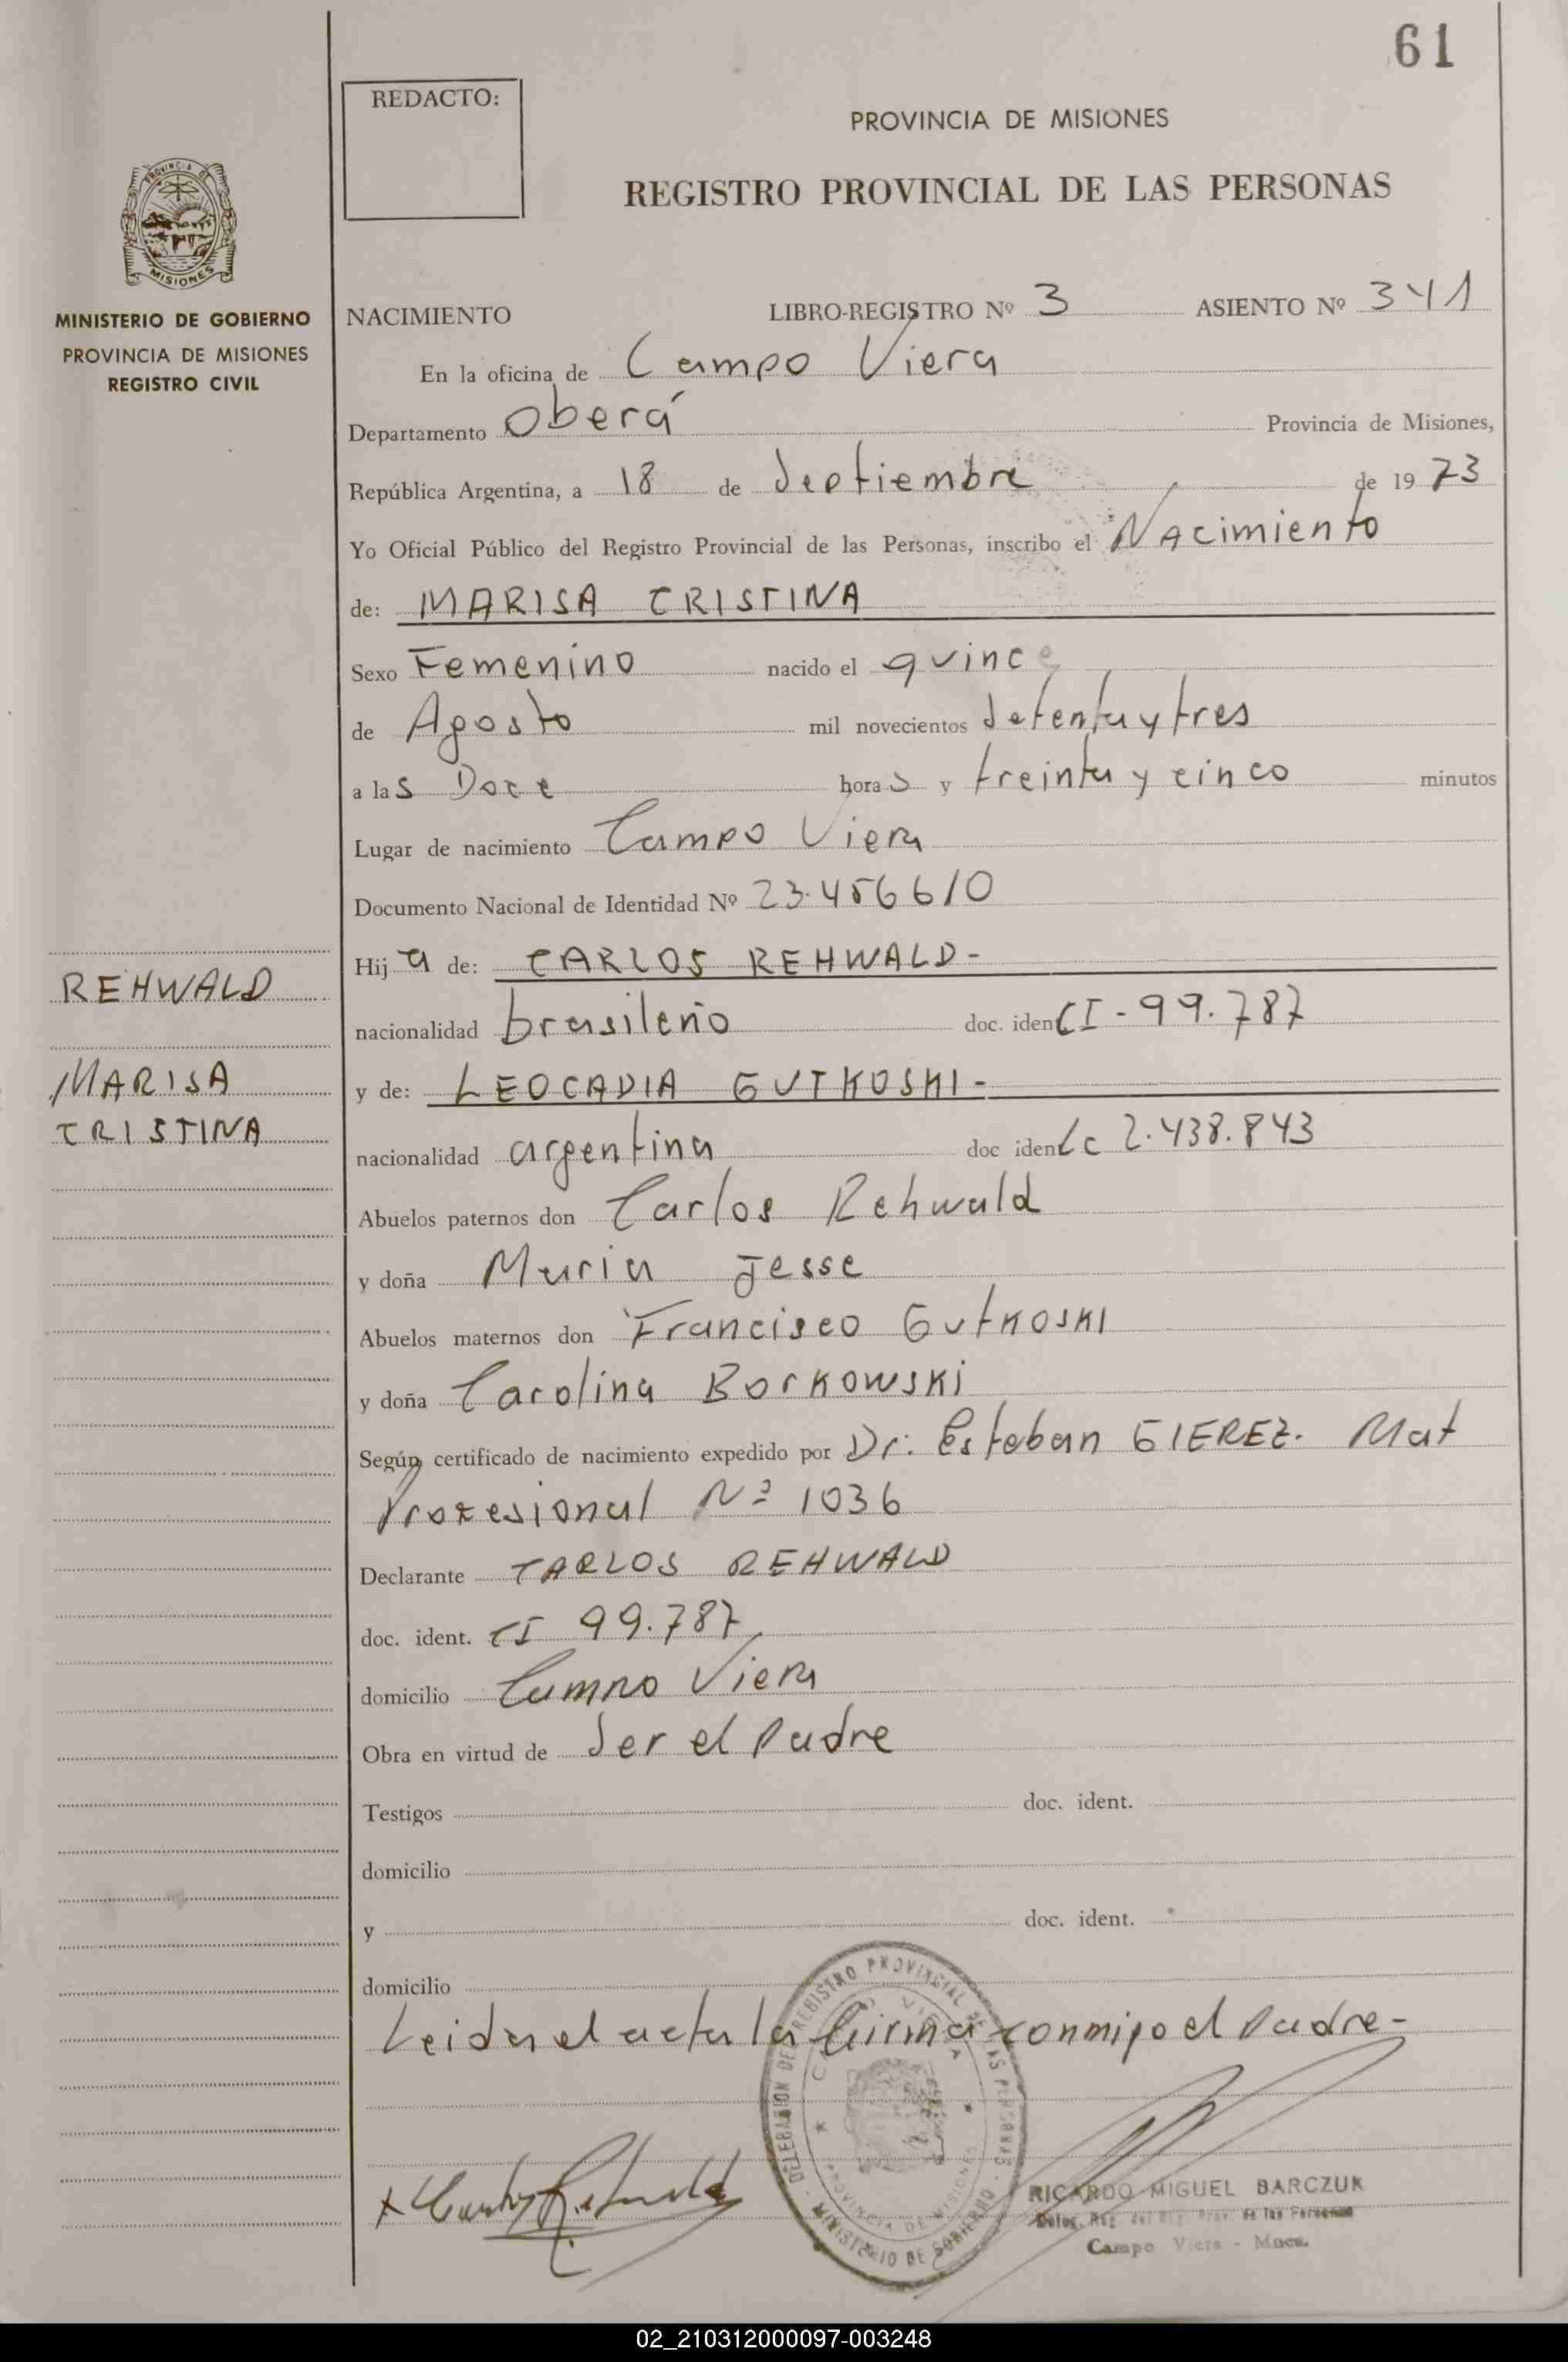 61
REDACTO:
PROVINCIA DE MISIONES
REGISTRO PROVINCIAL DE LAS PERSONAS
PROVINCIA DE
MISIONES
MINISTERIO DE GOBIERNO
PROVINCIA DE MISIONES
REGISTRO CIVIL
NACIMIENTO LIBRO-REGISTRO Nº 3 ASIENTO Nº 341
En la oficina de Campo Viera
Departamento Oberá Provincia de Misiones,
República Argentina, a 18 de Septiembre de 1973
Yo Oficial Público del Registro Provincial de las Personas, inscribo el Nacimiento
de: MARISA CRISTINA
Sexo Femenino nacido el quince
de Agosto mil novecientos setenta y tres
a las Doce horas y treinta y cinco minutos
Lugar de nacimiento Campo Viera
Documento Nacional de Identidad Nº 23.456610
Hija de: CARLOS REHWALD-
nacionalidad brasileño doc. iden CI-99.787
y de: LEOCADIA GUTKOSKI-
nacionalidad argentina doc iden Lc 2.438.843
Abuelos paternos don Carlos Rehwald
y doña Maria Jesse
Abuelos maternos don Francisco GutKOSKI
y doña Carolina Borkowski
Según certificado de nacimiento expedido por Dr: Esteban GIEREZ. Mat
Profesional Nº 1036
Declarante CARLOS REHWALD
doc. ident. CI 99.787
domicilio Campo Viera
Obra en virtud de Ser el Padre
Testigos doc. ident.
domicilio
y doc. ident.
domicilio
Leida el acta la firma conmigo el Padre-
REHWALD
MARISA
CRISTINA
DELEGACION DEL REGISTRO PROVINCIAL DE LAS PERSONAS
MINISTERIO DE GOBIERNO
CAMPO VIERA
PROVINCIA DE MISIONES
Carlos Rehwald
RICARDO MIGUEL BARCZUK
Prov. de las Personas
Campo Viera - Mnes.
02_210312000097-003248